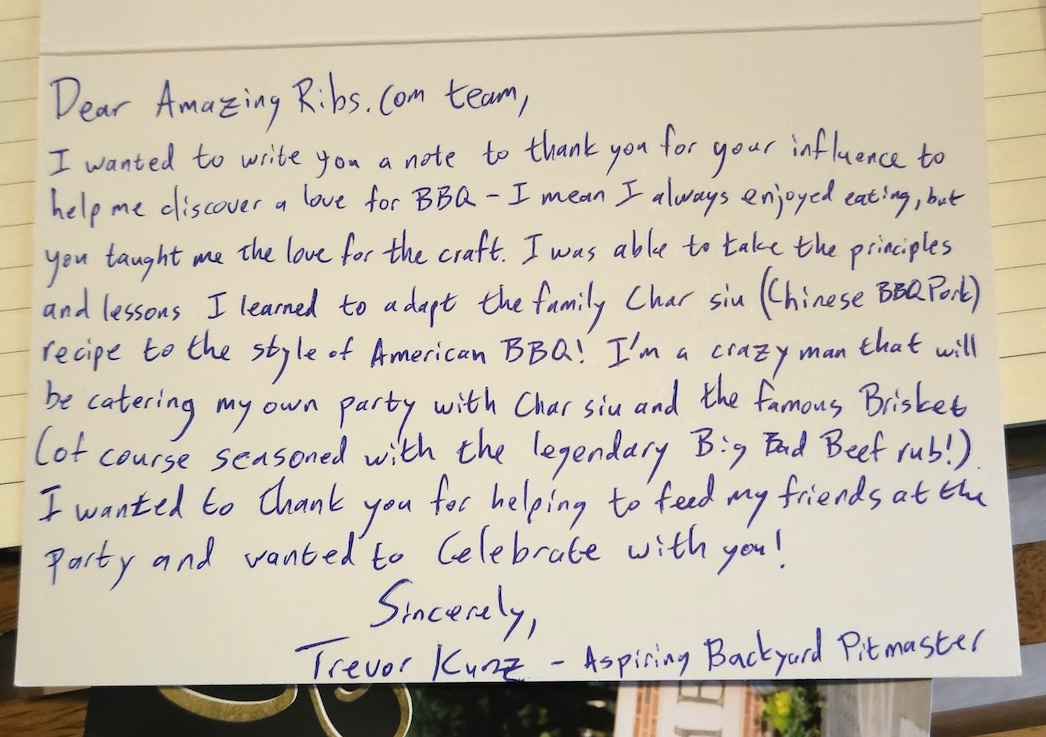 Dear Amazing Ribs.com team,
I wanted to write you a note to thank you for your influence to
help me discover a love for BBQ - I mean I always enjoyed eating, but
you taught me the love for the craft. I was able to take the principles
and lessons I learned to adapt the family Char siu (Chinese BBQ Pork)
recipe to the style of American BBQ! I'm a crazy man that will
be catering my own party with Char siu and the famous Brisket
(of course seasoned with the legendary Big Bad Beef rub!).
I wanted to thank you for helping to feed my friends at the
party and wanted to Celebrate with you!
Sincerely,
Trevor Kunz - Aspiring Backyard Pitmaster